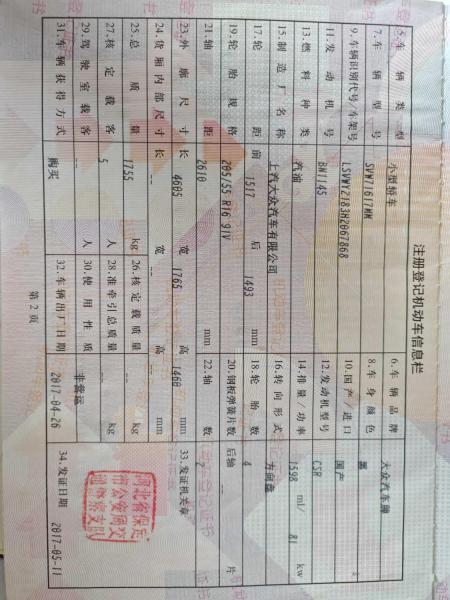 注册登记机动车信息栏
5.车辆类型 小型轿车 6.车辆品牌 大众汽车牌
7.车辆型号 SVW71617MM 8.车身颜色 黑
9.车辆识别代号/车架号 LSVWY2183H2067868 10.国产/进口 国产
11.发动机号 BW1145 12.发动机型号 CSR
13.燃料种类 汽油 14.排量/功率 1598 ml/ 81 kw
15.制造厂名称 上汽大众汽车有限公司 16.转向形式 方向盘
17.轮距 前 1517 后 1493 mm 18.轮胎数 4
19.轮胎规格 205/55 R16 91V 20.钢板弹簧片数 后轴 -- 片
21.轴距 2610 mm 22.轴数 2
23.外廓尺寸 长 4605 宽 1765 高 1460 mm 33.发证机关章
24.货厢内部尺寸 长 -- 宽 -- 高 -- mm
25.总质量 1755 kg 26.核定载质量 -- kg
27.核定载客 5 人 28.准牵引总质量 -- kg
29.驾驶室载客 -- 人 30.使用性质 非营运
31.车辆获得方式 购买 32.车辆出厂日期 2017-04-26 34.发证日期 2017-05-11
河北省保定
市公安局交
通警察支队
第2页